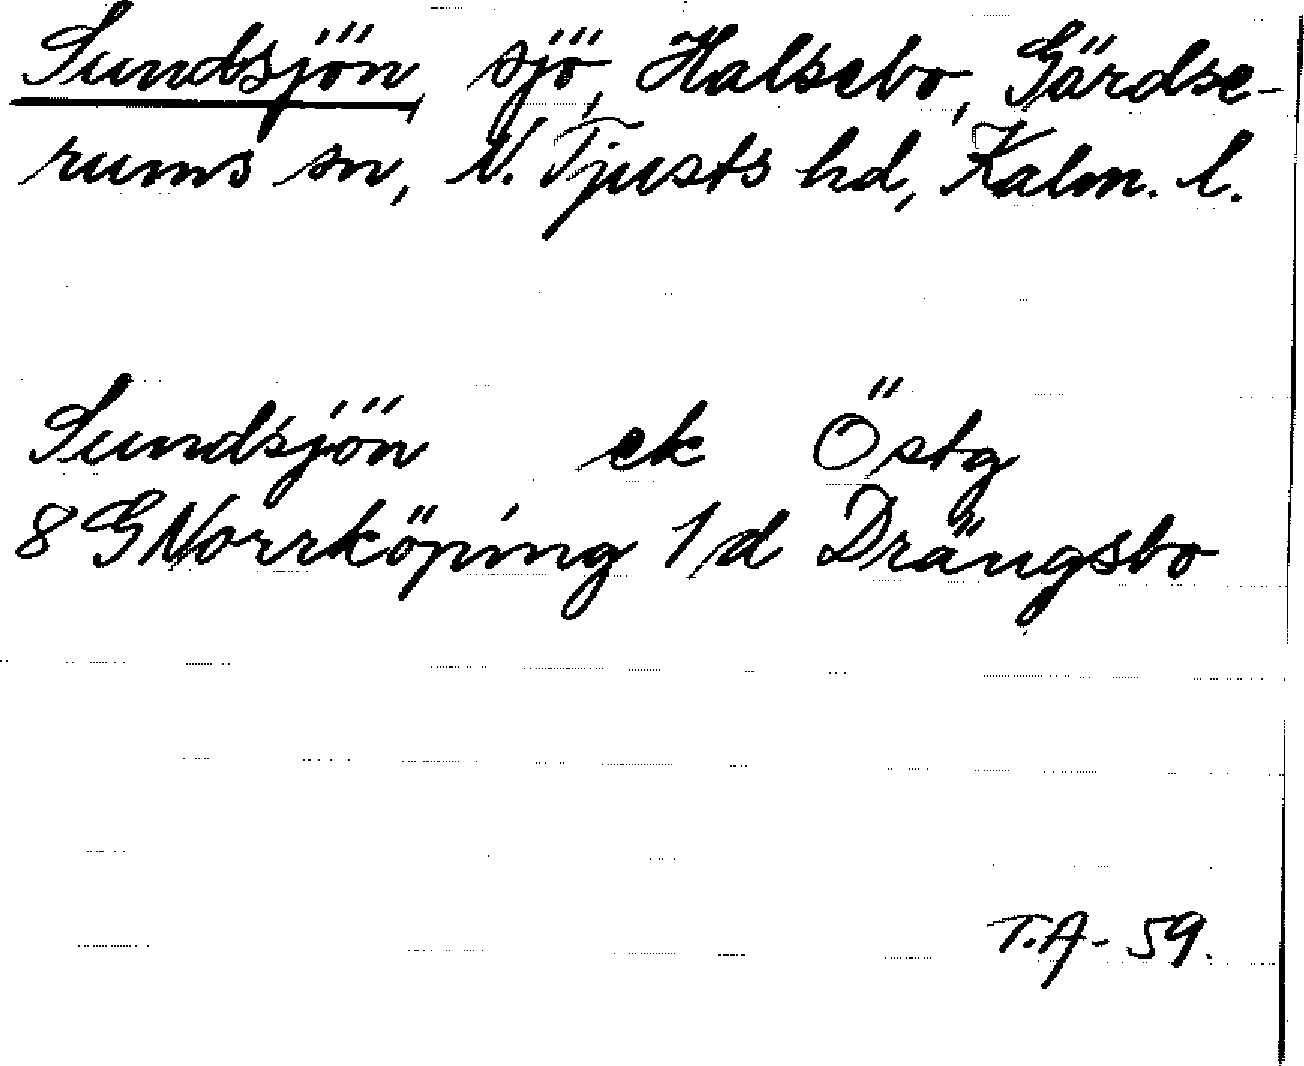 Sundsjön, sjö, Halsebo, Gärdse-
rums sn, N. Tjusts hd, Kalm. l.
Sundsjön ek Östg
8 G Norrköping 1/d Drängsbo
T.A - 59.